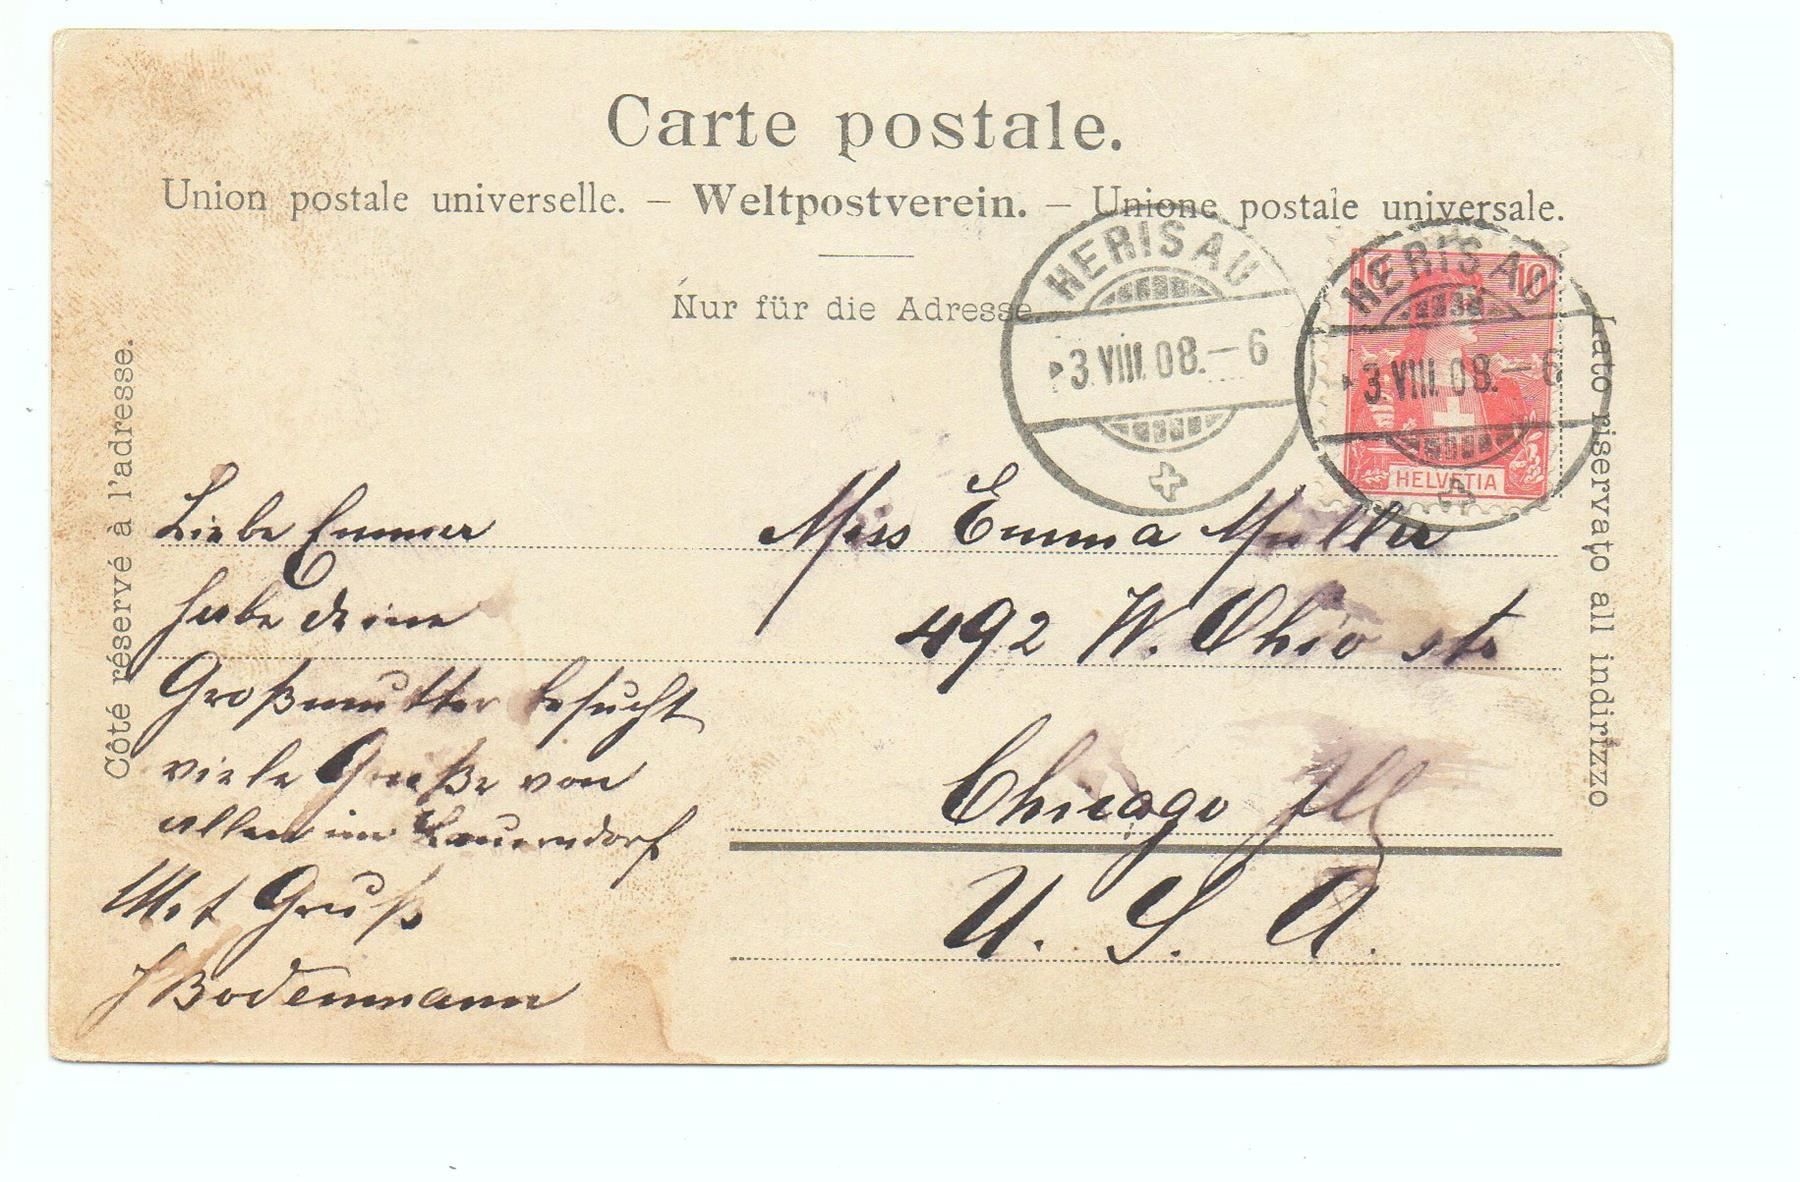 Carte postale.
Union postale universelle. – Weltpostverein. – Unione postale universale.
Nur für die Adresse.
HERISAU
3.VIII.08.–6
HERISAU
3.VIII.08.–6
10
HELVETIA
Côté réservé à l'adresse.
Lato riservato all indirizzo
Liebe Emma
habe deine
Großmutter besucht
viele Grüße von
allen im
Mit Gruß
J Bodenmann
Miss Emma Muller
492 W. Ohio str
Chicago Ill
U. S. A.